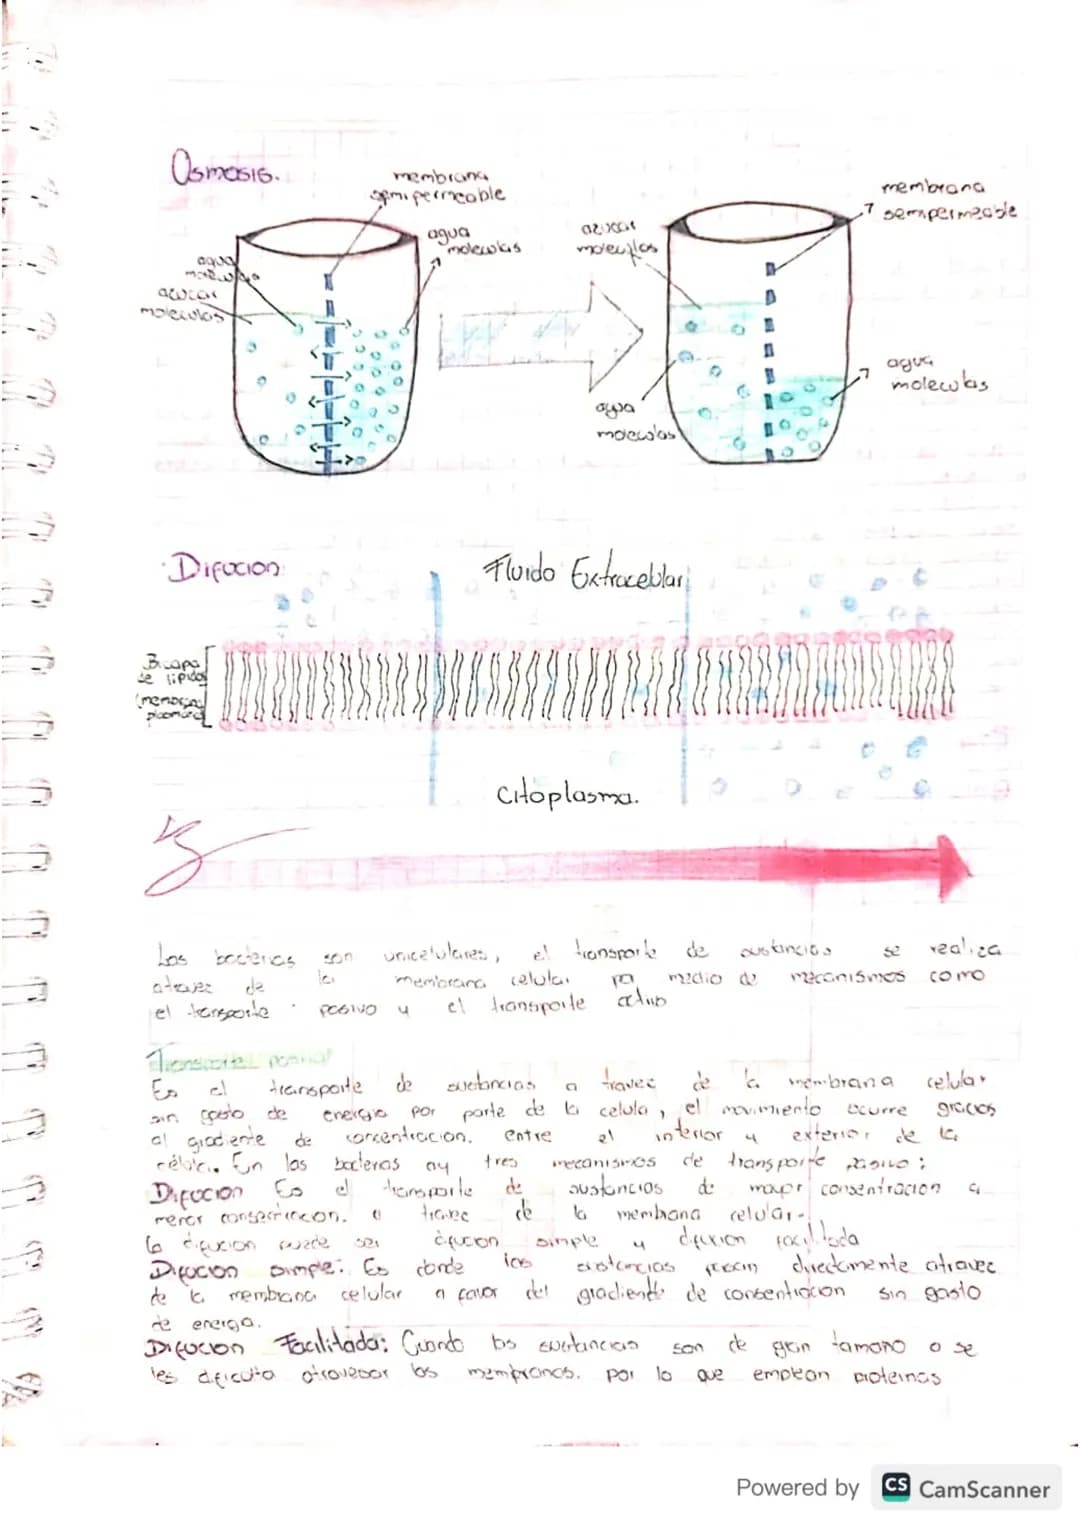 Osmosis.
membrana
semipermeable
agua
moleculas
agua
moleculas
azucar
moleculas
azucar
moleculas
membrana
semipermeable
agua
moleculas
agua
moleculas
Difucion
Fluido Extracelular
Bicapa
de lipidos
(membrana
plasmatica
Citoplasma.
Las bacterias son unicelulares, el transporte de sustancias se realiza
atravez de la membrana celular por medio de mecanismos como
el transporte pasivo y el transporte activo
Transporte pasivo
Es el transporte de sustancias a travez de la membrana celular
sin gasto de energia por parte de la celula, el movimiento ocurre gracias
al gradiente de concentracion. entre el interior y exterior de la
célula. En las bacterias ay tres mecanismos de transporte pasivo:
Difucion Es el transporte de sustancias de mayor consentracion a
menor consentracion. a travez de la membrana celular.
la difucion puede ser difucion simple y difucion facilitada
Difucion simple: Es donde las sustancias pasan directamente atravez
de la membrana celular a favor del gradiente de consentracion sin gasto
de energia.
Difucion Facilitada: Cuando las sustancias son de gran tamaño o se
les dificulta atravesar las membranas. por lo que emplean proteinas
Powered by CS CamScanner